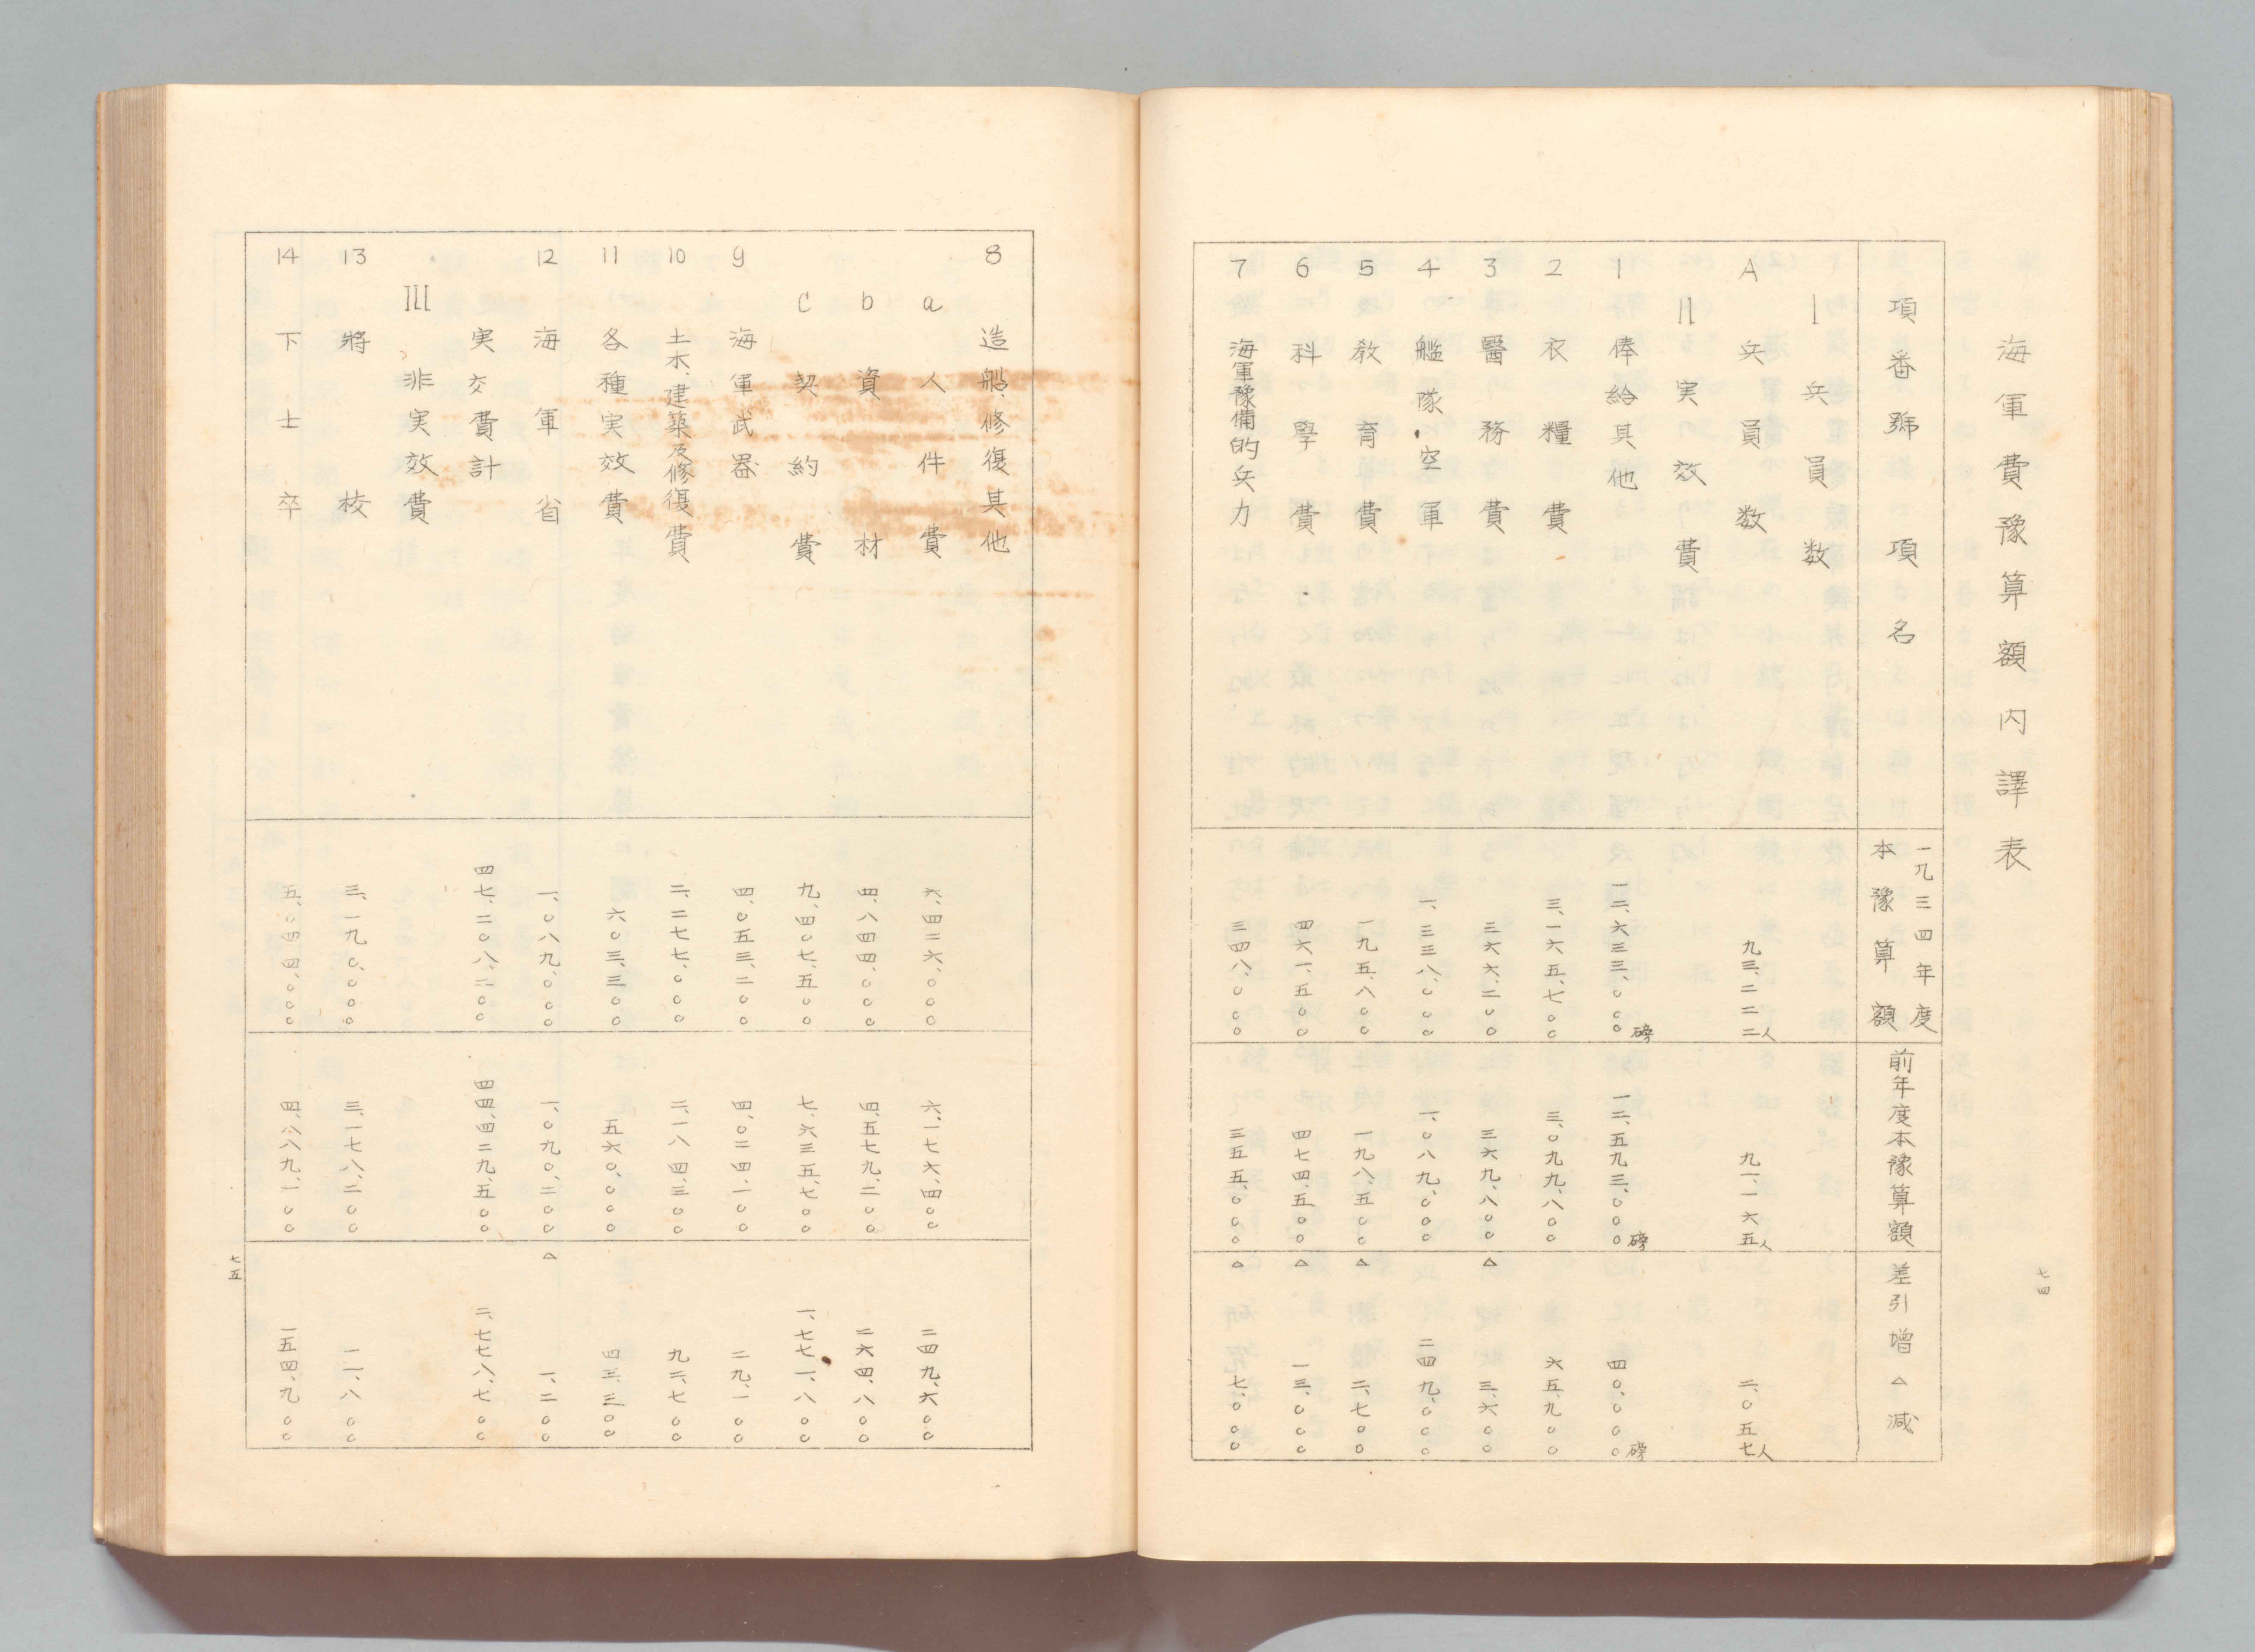 海軍費豫算額內譯表
項番號 項名 一九三四年度本豫算額 前年度本豫算額 差引増△減
I 兵員数
A 兵員数 九三、二二二人 九一、一六五人 二、〇五七人
II 実效費
1 俸給其他 一二、六三三、〇〇〇磅 一二、五九三、〇〇〇磅 四〇、〇〇〇磅
2 衣糧費 三、一六五、七〇〇 三、〇九九、八〇〇 六五、九〇〇
3 醫務費 三六六、二〇〇 三六九、八〇〇 △ 三、六〇〇
4 艦隊、空軍 一、三三八、〇〇〇 一、〇八九、〇〇〇 二四九、〇〇〇
5 敎育費 一九五、八〇〇 一九八、五〇〇 △ 二、七〇〇
6 科學費 四六一、五〇〇 四七四、五〇〇 △ 一三、〇〇〇
7 海軍豫備的兵力 三四八、〇〇〇 三五五、〇〇〇 △ 七、〇〇〇
七四
8 造船、修復其他
a 人件費 六、四二六、〇〇〇 六、一七六、四〇〇 二四九、六〇〇
b 資材 四、八四四、〇〇〇 四、五七九、二〇〇 二六四、八〇〇
c 契約費 九、四〇七、五〇〇 七、六三五、七〇〇 一、七七一、八〇〇
9 海軍武器 四、〇五三、二〇〇 四、〇二四、一〇〇 二九、一〇〇
10 土木、建築及修復費 二、二七七、〇〇〇 二、一八四、三〇〇 九二、七〇〇
11 各種実效費 六〇三、三〇〇 五六〇、〇〇〇 四三、三〇〇
12 海軍省 一、〇八九、〇〇〇 一、〇九〇、二〇〇 △ 一、二〇〇
実交費計 四七、二〇八、二〇〇 四四、四二九、五〇〇 二、七七八、七〇〇
III 非実效費
13 將校 三、一九〇、〇〇〇 三、一七八、二〇〇 一一、八〇〇
14 下士卒 五、〇四四、〇〇〇 四、八八九、一〇〇 一五四、九〇〇
七五